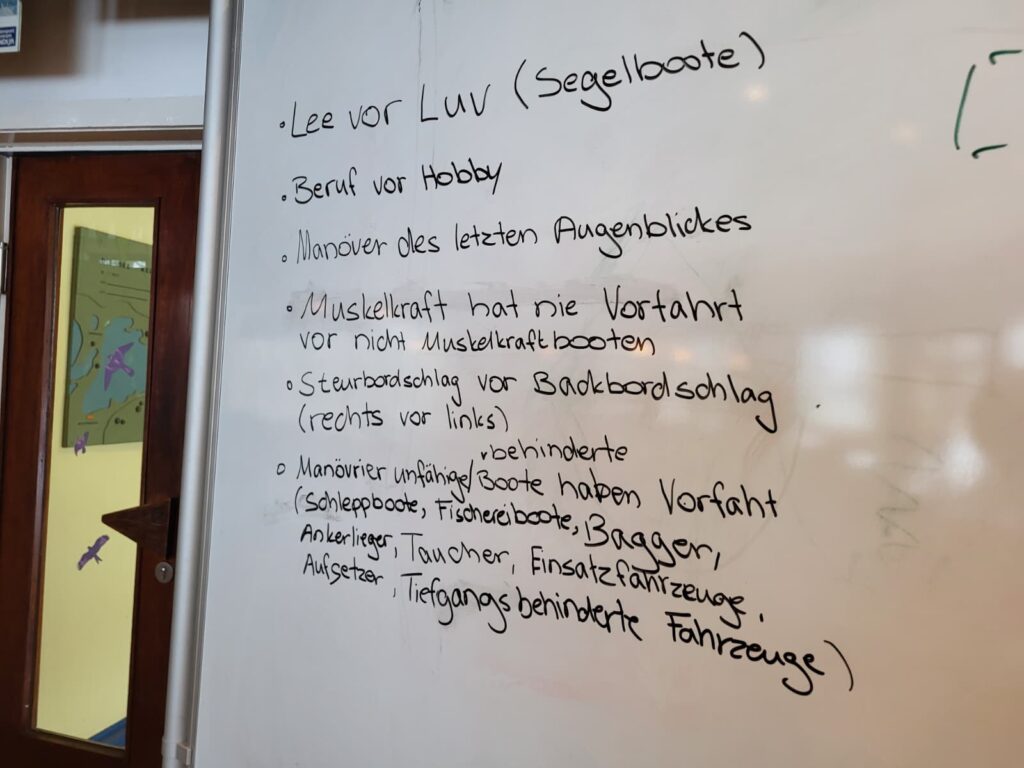 • Lee vor Luv (Segelboote)
• Beruf vor Hobby
• Manöver des letzten Augenblickes
• Muskelkraft hat nie Vorfahrt
vor nicht Muskelkraftbooten
• Steurbordschlag vor Backbordschlag
(rechts vor links)
behinderte
• Manövrier unfähige/Boote haben Vorfaht
(Schleppboote, Fischereiboote, Bagger,
Ankerlieger, Taucher, Einsatzfahrzeuge,
Aufsetzer, Tiefgangsbehinderte Fahrzeuge)